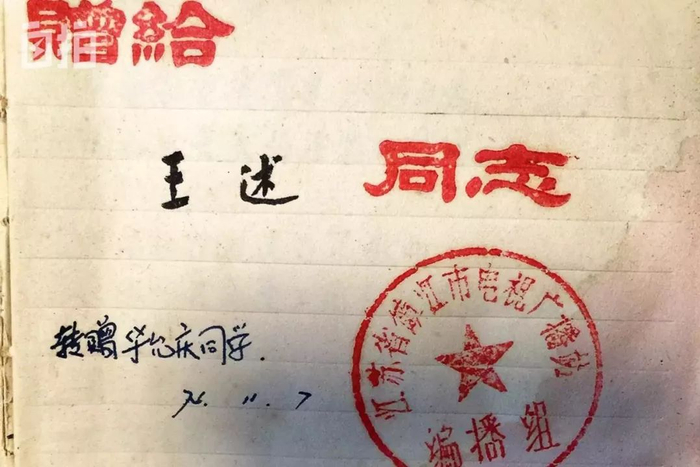 贈給
王述 同志
江苏省镇江市电视广播站
编播组
转赠华允庆同学.
76. 11. 7